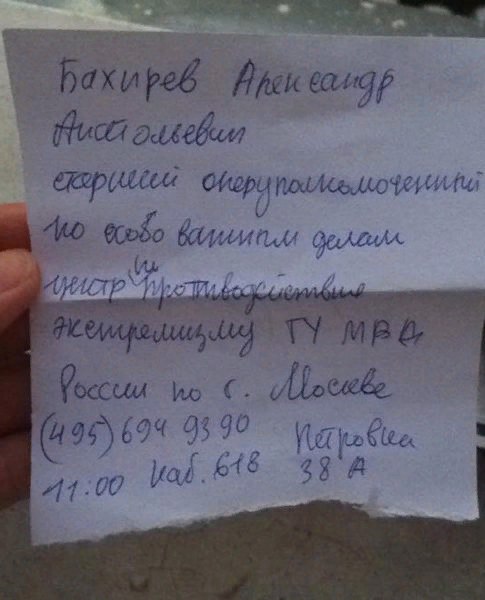 Бахирев Александр
Анатольевич
старший оперуполномоченный
по особо важным делам
центр по противодействию
экстремизму ГУ МВД
России по г. Москве
(495) 694 93 90 Петровка
11:00 каб. 618 38 А